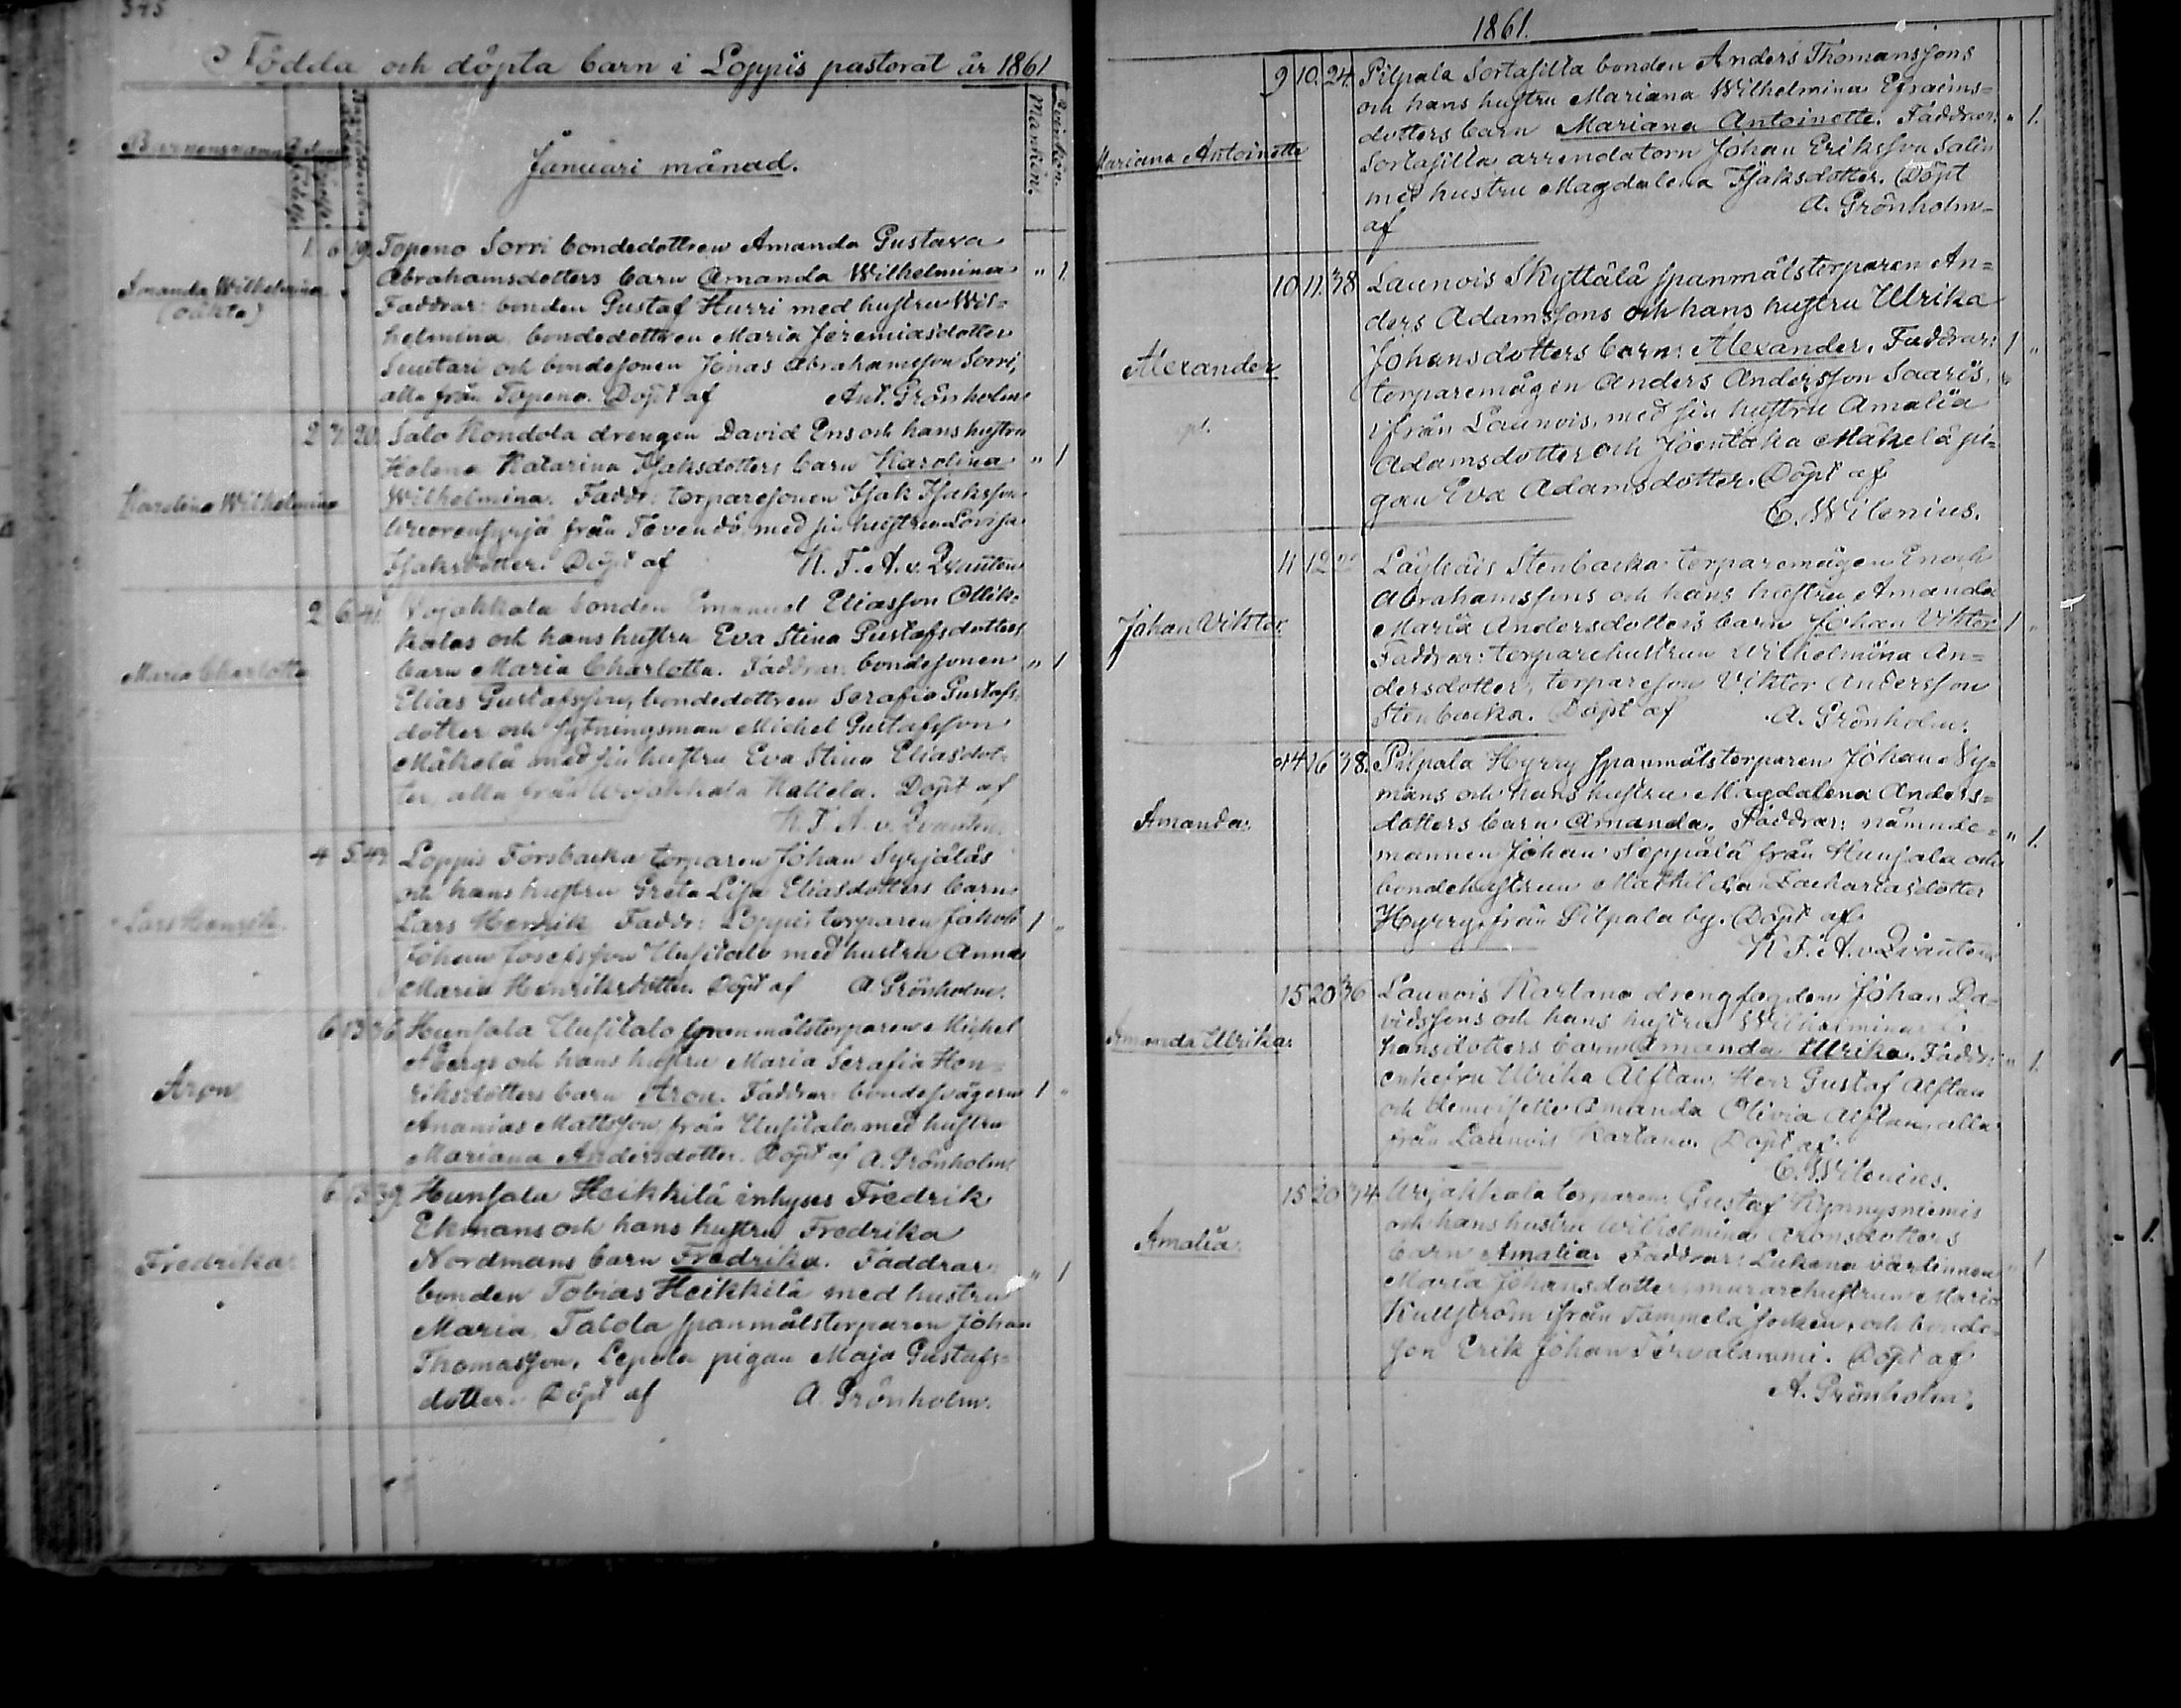 345
Födda och döpta barn i Loppis pastorat år 1861
Barnens namn
Januari månad.
Mankön.
Qvinkön.
Amanda Wilhelmina
(oäkta)
1. 6 19. Topeno Sorri bondedottren Amanda Gustava
Abrahamsdotters barn Amanda Wilhelmina " 1.
Faddrar: bonden Gustaf Hurri med hustru Wil=
helmina, bondedottren Maria Jeremiasdotter
Suutari och bondesonen Jonas Abrahamsson Sorri,
alla från Topeno. Döpt af Ant. Grönholm
Karolina Wilhelmina
2 7. 20. Salo Kondola drengen David Ens och hans hustru
Helena Katarina Isaksdotters barn Karolina " 1
Wilhelmina. Faddr: torparesonen Isak Isaksson
från Tevendö med sin hustru Lovisa
Isaksdotter. Döpt af K. F. A. v. Qvanten
Maria Charlotta
2 6 41. Wojakkala bonden Emanuel Eliasson Ollik=
kalas och hans hustru Eva Stina Gustafsdotters
barn Maria Charlotta. Faddrar: bondesonen " 1
Elias Gustafsson, bondedottren Serafia Gustafs=
dotter och sytningsman Michel Gustafsson
Mäkelä med sin hustru Eva Stina Eliasdot=
ter, alla från Wojakkala Kallela. Döpt af
K. F. A. v. Qvanten.
Lars Henrik
4 5 Loppis Forsbacka torparen Johan Syrjäläs
och hans hustru Greta Lisa Eliasdotters barn
Lars Henrik Faddr: Loppis torparen Jakob 1 "
Johan Josefsson Uusitalo med hustru Anna
Maria Henriksdotter. Döpt af A. Grönholm.
Aron
6 13 36 Hunsala Uusitalo spanmålstorparen Michel
Åbergs och hans hustru Maria Serafia Hen=
riksdotters barn Aron. Faddrar: bondesvågern 1 "
Ananias Mattsson från Uusitalo med hustru
Mariana Andersdotter. Döpt af A. Grönholm
Fredrika
6 13 39. Hunsala Heikkilä inhyses Fredrik
Ekmans och hans hustru Fredrika
Nordmans barn Fredrika. Faddrar: " 1
bonden Tobias Heikkilä med hustru
Maria, Talola spanmålstorparen Johan
Thomasson, Lepola pigan Maja Gustafs=
dotter. Döpt af A. Grönholm.
1861.
Mariana Antoinette
9 10. 24. Pilpala Sortasilla bonden Anders Thomanssons
och hans hustru Mariana Wilhelmina Efraims=
dotters barn Mariana Antoinette. Faddrar: " 1.
Sortasilla arrendatorn Johan Eriksson Salin
med hustru Magdalena Isaksdotter. Döpt
af A. Grönholm
Alexander
10 11. 38 Launois Skyttälä spanmålstorparen An=
ders Adamssons och hans hustru Ulrika
Johansdotters barn: Alexander. Faddrar: 1 "
torparemågen Anders Andersson Saaris,
ifrån Launois, med sin hustru Amalia
Adamsdotter och Joentaka Mäkelä pi=
gan Eva Adamsdotter. Döpt af
C. Wilenius.
Johan Viktor.
11 12 Läyliäis Stenbacka torparemågen Enoch
Abrahamssons och hans hustru Amanda
Maria Andersdotters barn Johan Viktor 1 "
Faddrar: torparehustrun Wilhelmina An=
dersdotter, torpareson Viktor Andersson
Stenbacka. Döpt af A. Grönholm.
Amanda.
14 16 38. Pilpala Hyrry spanmålstorparen Johan Ny=
mans och hans hustru Magdalena Anders=
dotters barn Amanda. Faddrar: nämnde= " 1.
mannen Johan Seppälä från Hunsala och
bondehustrun Mathilda Zachariasdotter
Hyrry, från Pilpala by. Döpt af
K F. A. v Qvanten
Amanda Ulrika.
15 20 36 Launois Kartano drengfogden Johan Da=
vidssons och hans hustru Wilhelmina
hansdotters barn Amanda Ulrika. Faddr: " 1.
enkefru Ulrika Alftan, Herr Gustaf Alftan
och demoiselle Amanda Olivia Alftan, alla
från Launois Kartano. Döpt af
C. Wilenius.
Amalia.
15 20 34. Wojakkala torparen Gustaf Kynnysniemis
och hans hustru Wilhelmina Aronsdotters
barn Amalia. Faddrar: Lukana värdinnan " 1
Maria Johansdotter, murarehustrun Maria
Kullström ifrån Tammela socken, och bonde=
son Erik Johan Tervalammi. Döpt af
A. Grönholm.